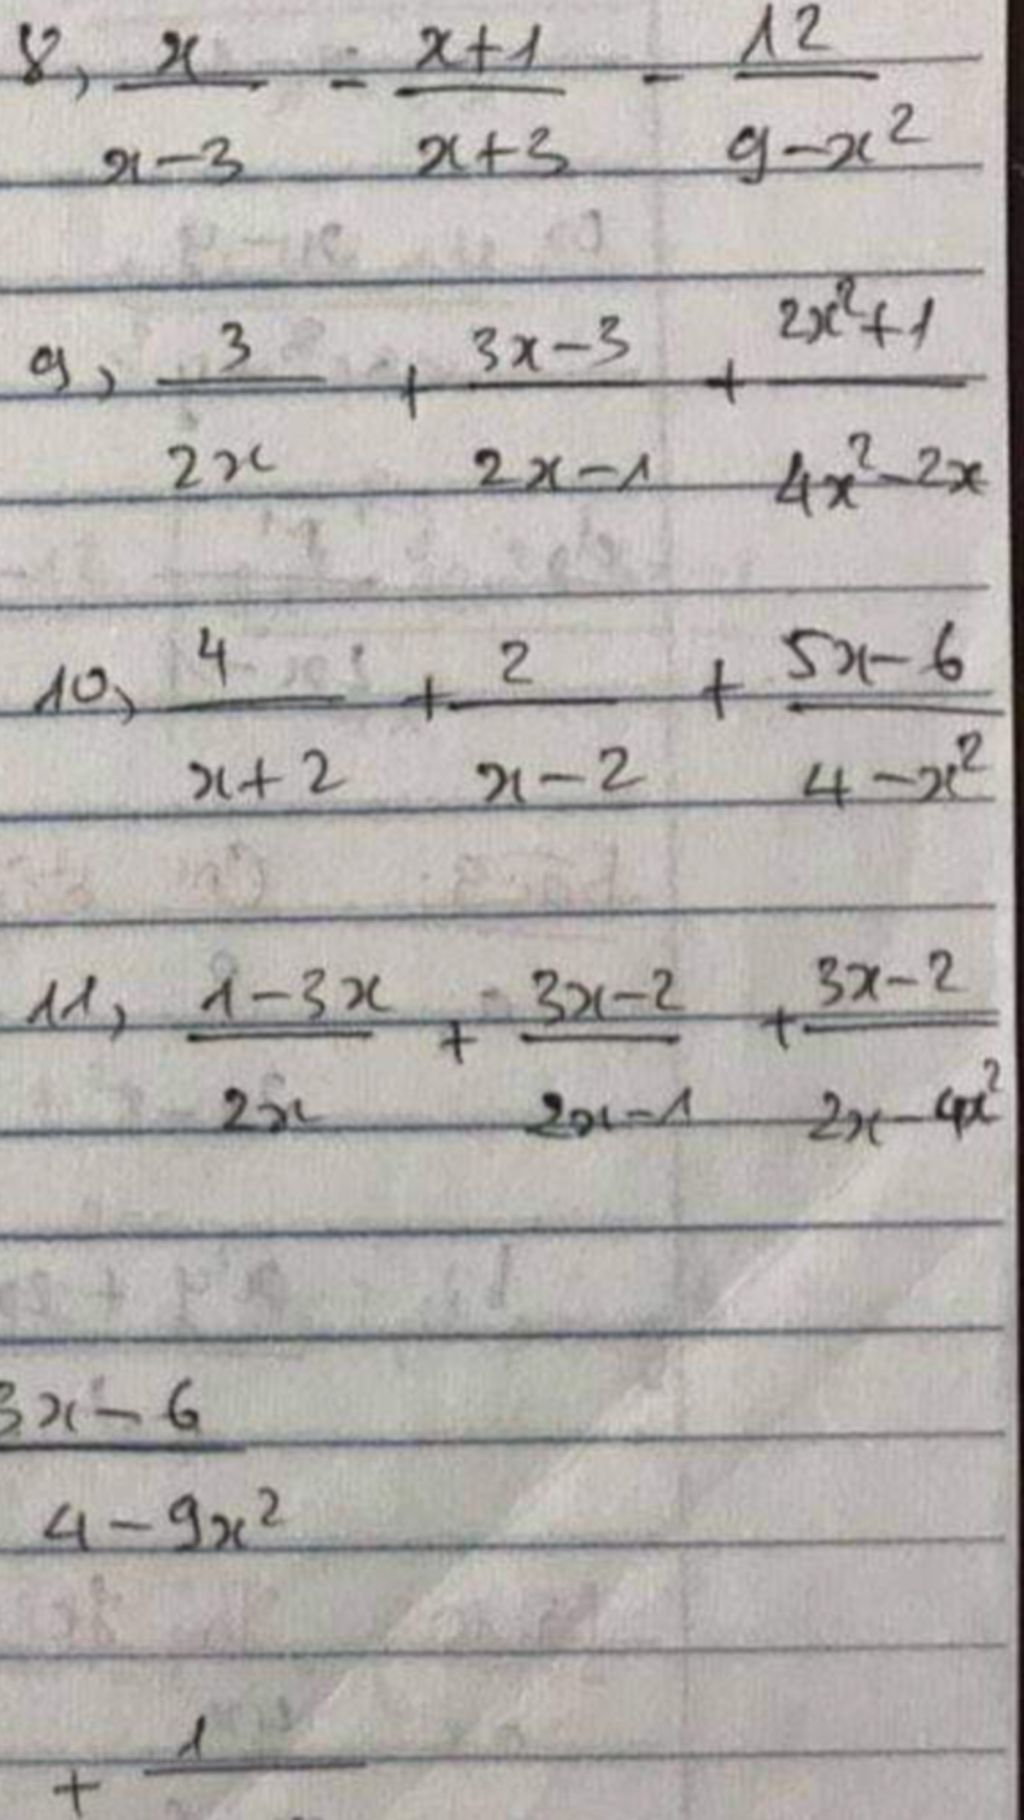 8, x/(x-3) - (x+1)/(x+3) - 12/(9-x²)
9, 3/(2x) + (3x-3)/(2x-1) + (2x²+1)/(4x²-2x)
10, 4/(x+2) + 2/(x-2) + (5x-6)/(4-x²)
11, (1-3x)/(2x) + (3x-2)/(2x-1) + (3x-2)/(2x-4x²)
(3x-6)/(4-9x²)
+ 1